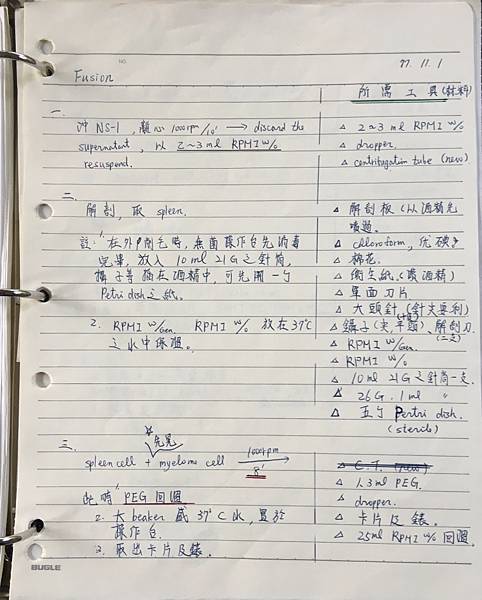 NO.
77. 11. 1
Fusion
所需工具(材料)
一.
沖 NS-1, 離心 1000rpm/10' → discard the
supernatant, 以 2~3 ml RPMI w/o
resuspend.
△ 2~3 ml RPMI w/o
△ dropper.
△ centrifugation tube (new)
二.
解剖, 取 spleen.
註: 1. 在外門剃毛時, 無菌操作台先消毒
完畢, 放入 10 ml 21G 之針筒,
鑷子等插在酒精中, 可先開一ㄎ
Petri dish 之紙.
2. RPMI w/Gen. RPMI w/o 放在37℃
之水中保溫。
△ 解剖板 (以酒精先
噴過.
△ chloroform, 優碘
△ 棉花.
△ 衛生紙 (噴酒精)
△ 單面刀片
△ 大頭針 (針尖要利)
△ 鑷子 (尖, 平頭)、解剖刀.
(二支)
△ RPMI w/Gen.
△ RPMI w/o
△ 10 ml 21G 之針筒一支.
△ 26G. 1 ml 〃
△ 五ㄎ Pertri dish.
(sterile)
三.
先晃
spleen cell + myeloma cell 1000rpm 8' →
此時 1. PEG 回溫
2. 大 beaker 盛 37℃ 水, 置於
操作台.
3. 取出卡片及錶.
△ C.T. (new)
△ 1.3 ml PEG.
△ dropper.
△ 卡片及錶.
△ 25ml RPMI w/o 回溫.
BUGLE